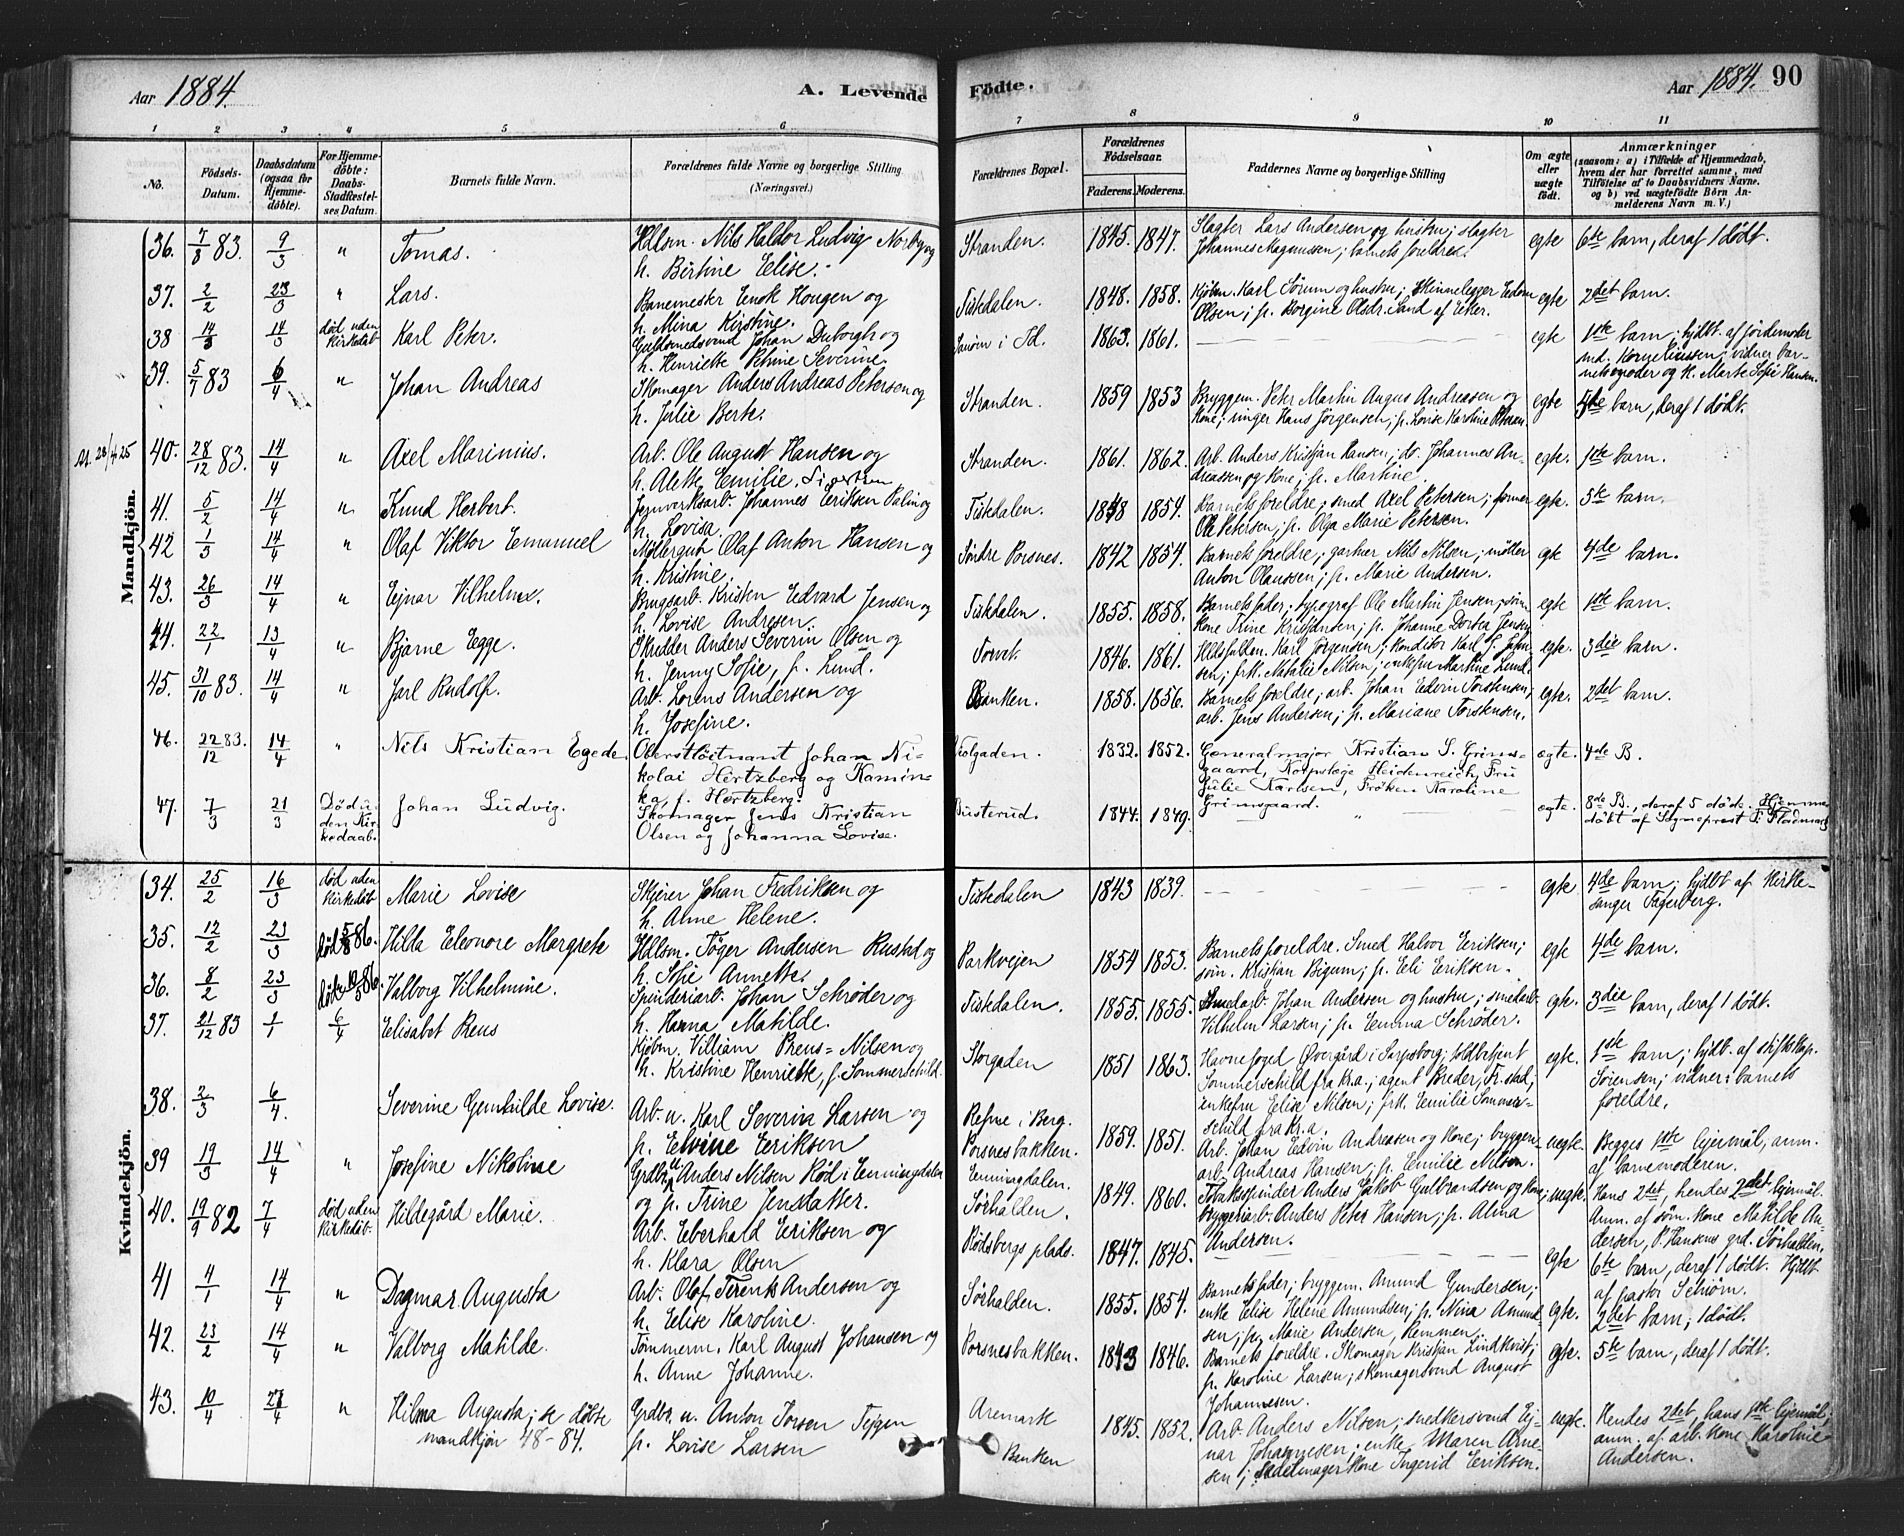 Aar 1884.
A. Levende Födte.
Aar 1884. 90
1 2 3 4 5 6 7 8 9 10 11
No.
Födsels-Datum.
Daabsdatum (ogsaa for Hjemme-döbte).
For Hjemme-döbte: Daabs-Stadfæstel-ses Datum.
Barnets fulde Navn.
Forældrenes fulde Navne og borgerlige Stilling (Næringsvei.)
Forældrenes Bopæl.
Forældrenes Födselsaar.
Faderens. Moderens.
Faddernes Navne og borgerlige Stilling
Om ægte eller uægte födt.
Anmærkninger
(saasom: a) i Tilfælde af Hjemmedaab,
hvem der har forrettet samme, med
Tilföielse af to Daabsvidners Navne.
og b) ved uægtefödte Börn An-
melderens Navn m. V.)
Mandkjön.
36. 7/8 83. 9/3 " Tomas. Hdlsm. Nils Haldor Ludvig Norby og
h. Bertine Elise.
Stranden. 1845. 1847. Slagter Lars Andersen og hustru; slagter
Johannes Magnussen; barnets foreldre. egte 6te barn, deraf 1 dødt.
37. 2/2 23/3 " Lars. Banemester Enok Hougen og
h. Mina Kirstine.
Tistedalen. 1848. 1858. Kjøbm. Karl Sørum og hustru; Edvin
Olsen; p. Borgine Olsdr. Sand af Eker. egte 2det barn.
38 14/3 14/3 død uden kirkedåb Karl Peter. Guldsmedsvend Johan Duborgh og
h. Henriette Petrine Severine.
i Id. 1863. 1861. egte 1ste barn; hjdbt. af jordemoder
md. Kornelinssen; vidner bar-
nets moder og k. Marte Sofie Hansen.
39. 5/7 83 6/4 " Johan Andreas Skomager Anders Andreas Petersen og
h. Julie Berte.
Stranden. 1859 1853 Bryggem. Peter Martin August Andreasen og
kone; ringer Hans Jørgensen; p. Lovise Karoline egte 4de barn, deraf 1 dødt.
40. 28/12 83. 14/4 " Axel Marinius. Arb. Ole August Hansen og
h. Alette Emilie.
Stranden. 1861. 1862. Arb. Anders Kristian Hansen; do. Johannes An-
dreassen og kone; p. Martine egte. 1ste barn.
41. 5/2 14/4 " Knud Herbert. Jernverksarb. Johannes Eriksen Palin og
h. Lovisa.
Tistedalen. 1848 1854. Barnets foreldre; smed Axel Petersen; former
Ole Petersen; p. Olga Marie Petersen. egte. 5te barn.
42 1/3 14/4 " Olaf Viktor Emanuel Møllergut Olaf Anton Hansen og
h. Kristine.
Søndre Porsnes. 1842 1854. Barnets foreldre; gartner Nils Nilsen; møller
Anton Olaussen; p. Marie Andersen. egte 4de barn.
43. 26/3 14/4 " Ejnar Vilhelm. Brugsarb. Kristen Edvard Jensen og
h. Lovise Andresen.
Tistedalen. 1855. 1858. Barnets fader; typograf Ole Martin Jensen; søm.
kone Trine Kristiansen; p. Johanne Dortea Jensen egte 1ste barn.
44. 22/1 13/4 " Bjarne Egge. Skredder Anders Severin Olsen og
h. Jenny Sofie, f. Lund.
Torvet. 1846. 1861. Hdlsfuldm. Karl Jørgensen; konditor Karl J. John-
sen; frk. Natalie Nilsen; enkefru Martine Lund egte. 3die barn.
45. 31/10 83. 14/4 " Jarl Rudolf. Arb. Lorens Andersen og
h. Josefine.
Banken. 1858. 1856. Barnets foreldre; arb. Johan Edvin Torstensen;
arb. Jens Andersen; p. Mariane Torstensen. egte. 2det barn.
46. 22/12 83. 14/4 " Nils Kristian Egede. Oberstløitnant Johan Ni-
kolai Hertzberg og Kamin-
ka, f. Hertzberg.
Volgaden. 1832. 1852. Generalmajor Kristian S. Grims-
gaard, Korpslæge Heidenreich, Fru
Julie Karlsen, Frøken Karoline
Grimsgaard. ægte. 4de B.
47. 7/3 21/3 Død u-den Kir-kedaab. Johan Ludvig. Skomager Jens Kristian
Olsen og Johanna Lovise.
Busterud. 1844. 1849. " ægte. 8de B., deraf 5 døde. Hjemme-
døbt af Sogneprest F. Fladmark
Kvindekjön.
34. 25/2 16/3 død uden kirkedåb Marie Lovise Skjærer Johan Fredriksen og
h. Anne Helene.
Tistedalen 1843 1839. egte. 4de barn; hjdbt af kirke-
sanger Fagerberg.
35. 12/2 23/3 død 5/8 86. Hilda Eleonore Margrete Hdlsm. Tøger Andersen Rustad og
h. Sofie Annette.
Parkvejen 1854 1853. Barnets foreldre. Smed Halvor Eriksen;
søm. Kristian Bigum; p. Eli Eriksen. egte 4de barn.
36. 8/2 23/3 død 10/5 86. Valborg Vilhelmine. Spinderiarb. Johan Schrøder og
h. Hanna Matilde.
Tistedalen. 1855. 1855. Smedarb. Johan Andersen og hustru; smedarb.
Vilhelm Larsen; p. Emma Schrøder. egte. 3die barn, deraf 1 dødt.
37. 21/12 83 2/1 6/4 Elisabet Preus Kjøbm. Villiam Preus-Nilsen og
h. Kristine Henriette, f. Sommerschild.
Storgaden 1851 1863. Havnefoged Øvergård i Sarpsborg; toldbetjent
Sommerschild fra Kr.a.; agent Breder, Fr.stad;
enkefru Elise Nilsen; frk. Emilie Sommer-
schild fra Kr.a. egte. 1ste barn; hjdb. af stiftskap.
Sørensen; vidner: barnets
foreldre.
38. 2/3 6/4. Severine Gunhilde Lovise. Arb. u. Karl Severin Larsen og
p. Elvine Eriksen
Refne i Berg.
Porsnesbakken. 1859. 1851. Arb. Johan Edvin Andreasen og kone; bryggeri-
arb. Andreas Hansen; p. Emilie Nilsen. uegte. Begges 1ste lejermål, anm.
af barnemoderen.
39 19/3 14/4 " Josefine Nikoline Grdbr. u. Anders Nilsen Röd i Enningdalen
og p. Trine Jensdatter.
Enningdalen.
Sørhalden. 1849. 1860. Tobaksspinder Anders Jakob Gulbrandsen og kone;
bryggeriarb. Anders Peter Hansen; p. Alma
Andersen. uegte. Hans 2det, hendes 2det lejermål.
Anm. af søm. kone Matilde An-
dersen, P. Hansens grd. Sørhalden.
40. 19/9 82 7/4 død uden kirkedåb. Hildegård Marie. Arb. Eberhald Eriksen og
h. Klara Olsen
Rødsbergs plads. 1847. 1845. egte 6te barn, deraf 1 dødt. Hjdbt
af pastor Schiørn.
41 4/1 14/4 " Dagmar Augusta Arb. Olaf Terents Andersen og
h. Elise Karoline.
Sørhalden. 1855. 1854. Barnets fader; bryggem. Amund Gundersen;
enke Elise Helene Amundsen; p. Nina Amund-
sen; p. Marie Andersen, Remmen. egte. 2det barn; 1 dødt.
42. 23/2 14/4 " Valborg Matilde. Tømmerm. Karl August Johansen og
h. Anne Johanne.
Porsnesbakken. 1843 1846. Barnets foreldre. Skomager Kristian Lindkvist;
p. Karoline Larsen; skomagersvend August
Johannesen. egte. 5te barn, deraf 1 dødt.
43. 10/4 27/4 " Hilma Augusta; se døbte
mandkjøn 48-84. Grdbr. u. Anton Torsen Tejgen
p. Lovise Larsen
Aremark
Banken 1845. 1852. Arb. Anders Nilsen; snedkersvend Ej-
nar Johannesen; enke Maren Arne-
sen; sadelmager kone Ingerid Eriksen. uegte. Hendes 2det, hans 1ste lejermål;
anm. af arb. kone Karoline
Andersen.